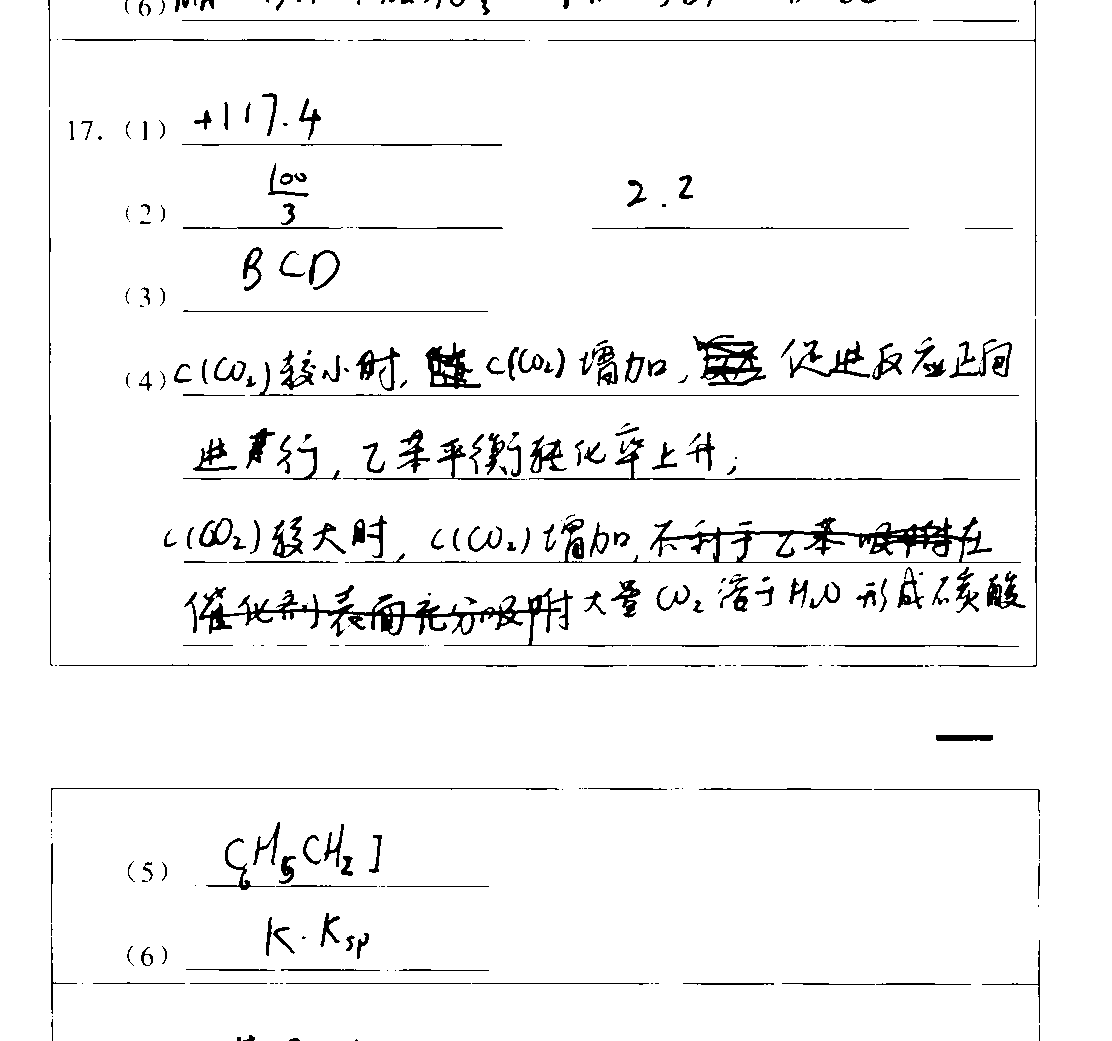 (6)
17. (1) +117.4
(2) 100/3 2.2
(3) BCD
(4) c(CO₂)较小时, c(CO₂)增加, 促进反应正向
进行, 乙苯平衡转化率上升;
c(CO₂)较大时, c(CO₂)增加, 不利于乙苯吸附在
催化剂表面充分吸附大量CO₂溶于H₂O形成碳酸
(5) C₆H₅CH₂I
(6) K·Ksp